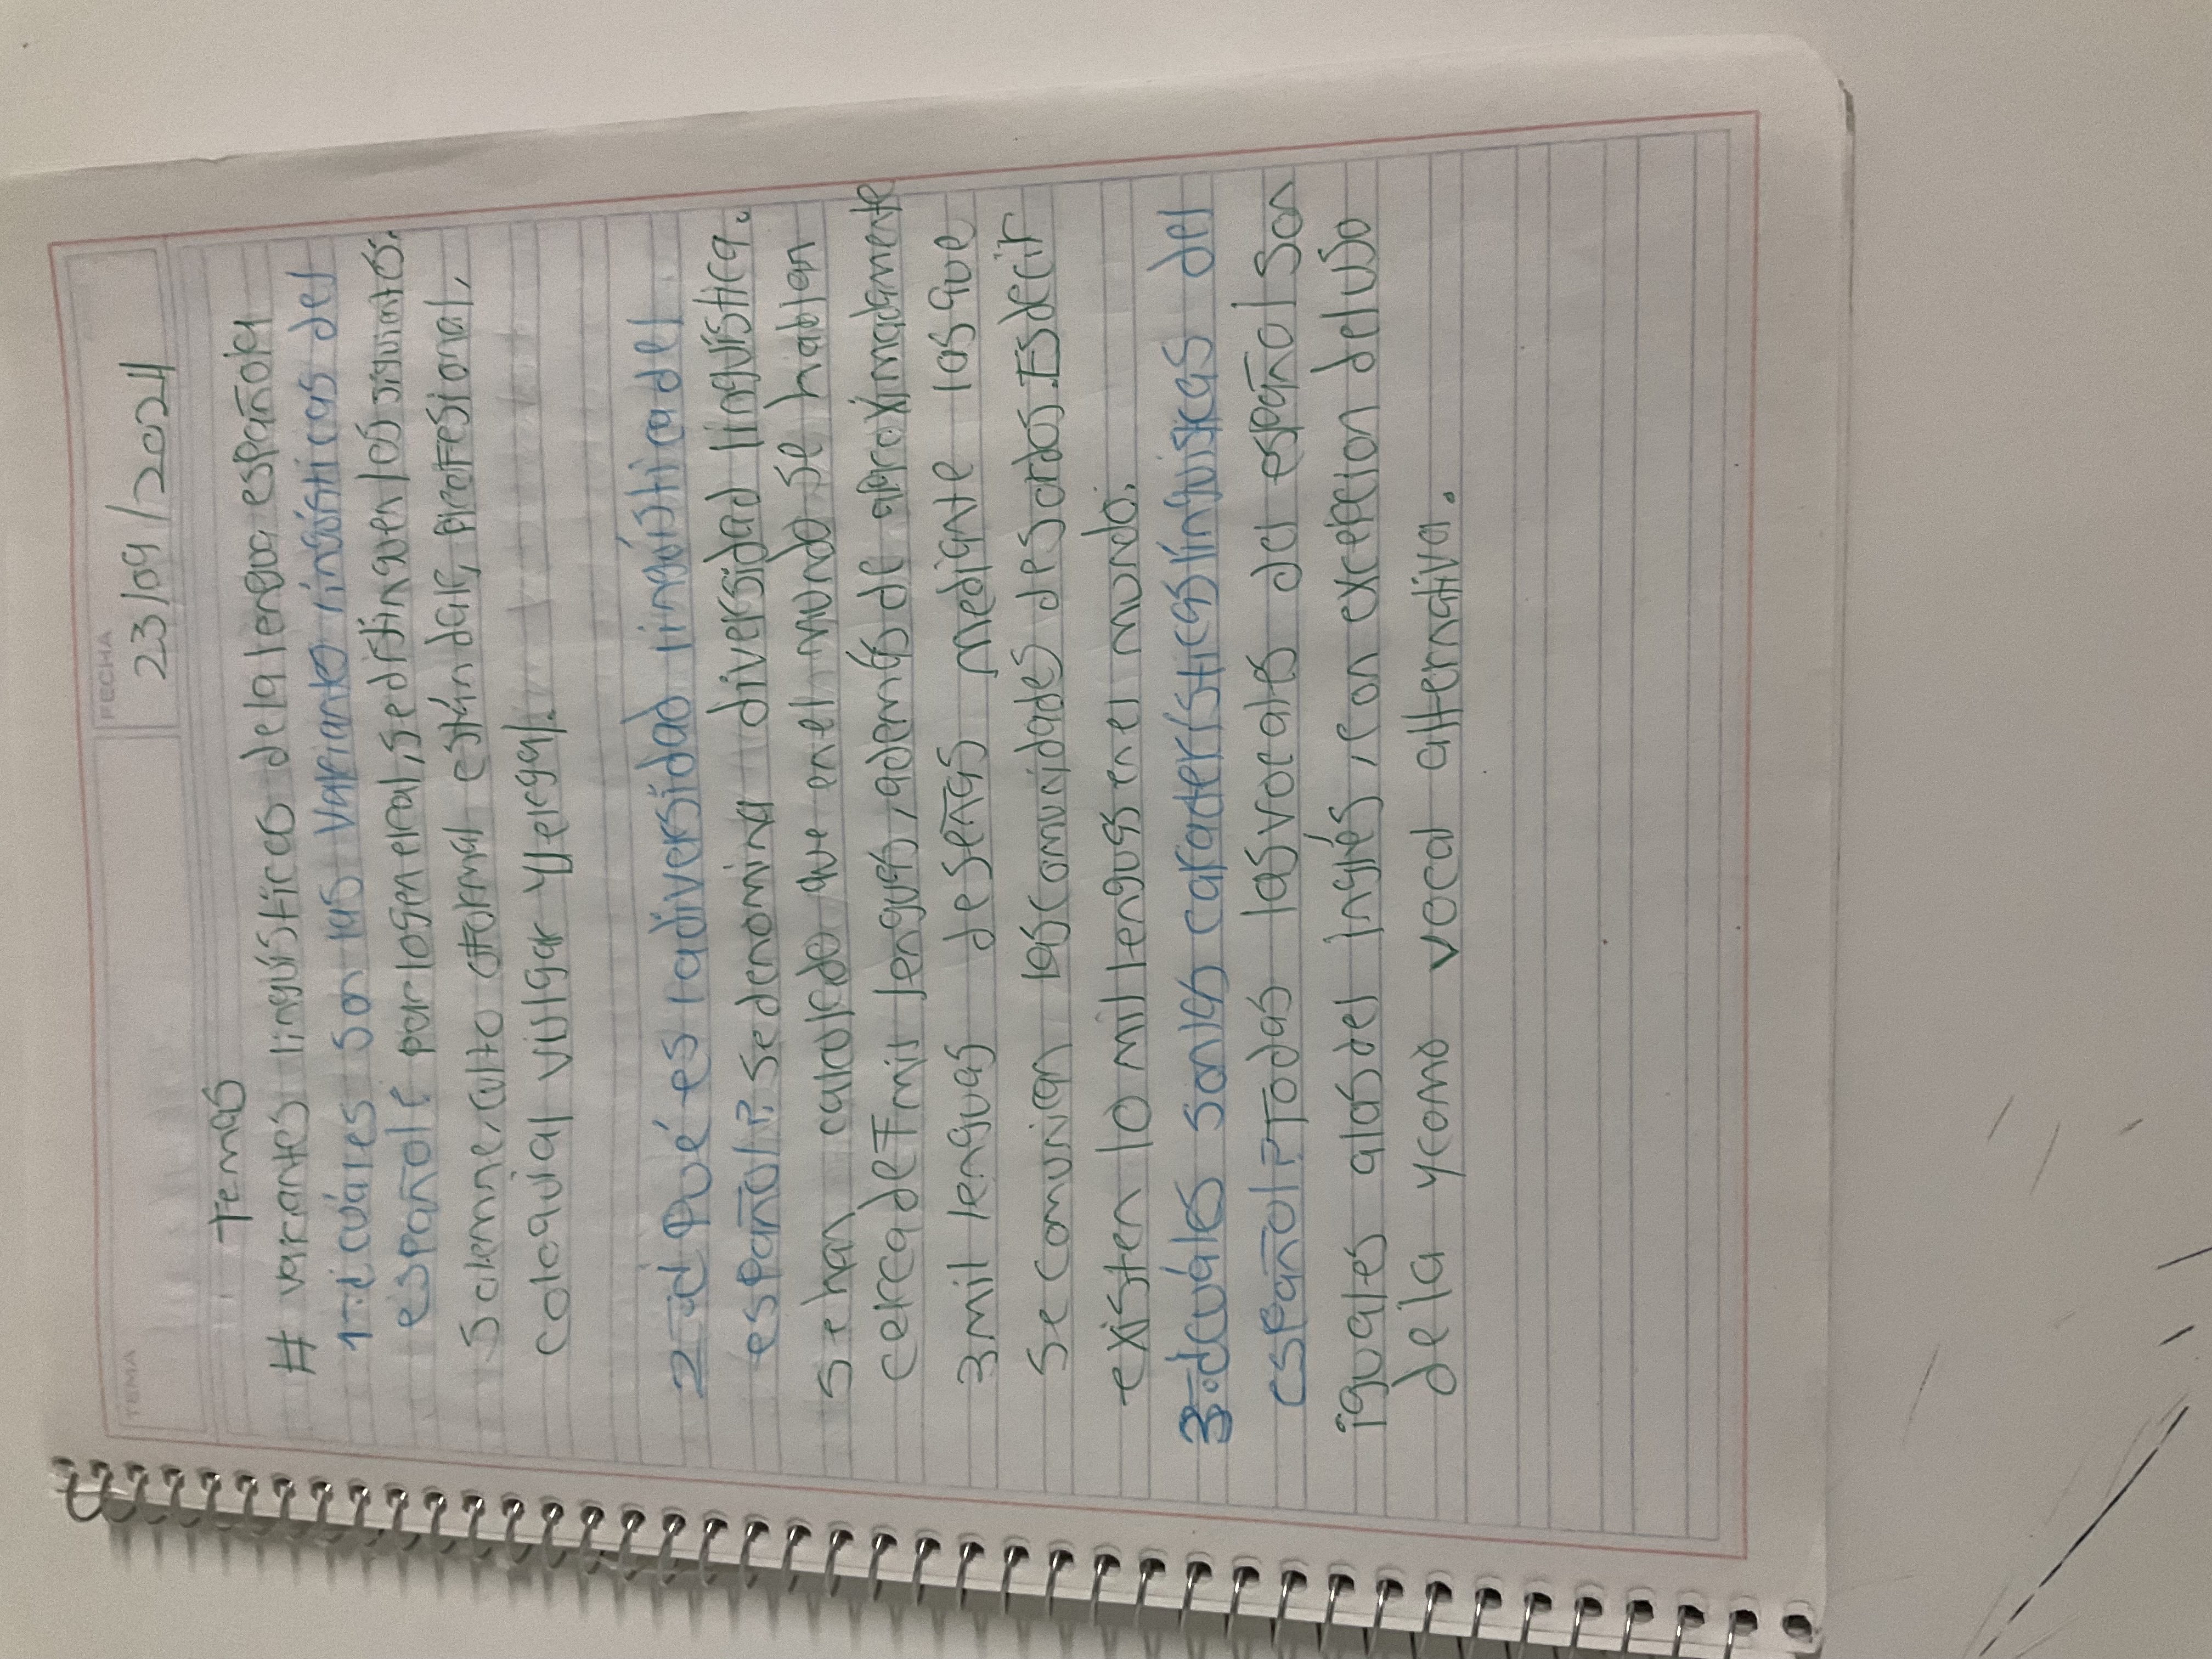 TEMA
FECHA
23/09/2024
Temas
# variantes lingüístico de la lengua española
1-¿cuáles son las variantes lingüísticas del
español? por lo general, se distinguen los siguientes.
solemne, culto o formal, estándar, profesional,
coloquial vulgar y jergal.
2-¿Qué es la diversidad lingüística del
español?. se denomina diversidad lingüística.
se han calculado que en el mundo se hablan
cerca de 7 mil lenguas, además de aproximadamente
3 mil lenguas de señas mediante las que
se comunican las comunidades de sordos. Es decir
existen 10 mil lenguas en el mundo.
3-¿cuáles son las características lingüísicas del
español? Todas las vocales del español son
iguales a las del inglés, con excepción del uso
de la y como vocal alternativa.